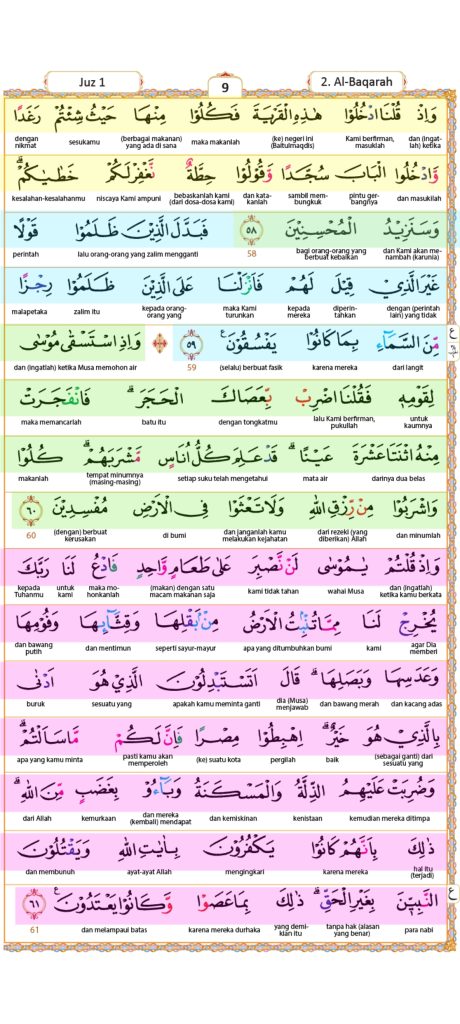 Juz 1
9
2. Al-Baqarah
وَاِذْ قُلْنَا ادْخُلُوْا هٰذِهِ الْقَرْيَةَ فَكُلُوْا مِنْهَا حَيْثُ شِئْتُمْ رَغَدًا
dan (ingat-lah) ketika Kami berfirman, masuklah (ke) negeri ini (Baitulmaqdis) maka makanlah (berbagai makanan) yang ada di sana sesukamu dengan nikmat
وَّادْخُلُوا الْبَابَ سُجَّدًا وَّقُوْلُوْا حِطَّةٌ نَّغْفِرْ لَكُمْ خَطٰيٰكُمْ ۗ
dan masukilah pintu ger-bangnya sambil mem-bungkuk dan kata-kanlah bebaskanlah kami (dari dosa-dosa kami) niscaya Kami ampuni kesalahan-kesalahanmu
وَسَنَزِيْدُ الْمُحْسِنِيْنَ ٥٨ فَبَدَّلَ الَّذِيْنَ ظَلَمُوْا قَوْلًا
dan Kami akan me-nambah (karunia) bagi orang-orang yang berbuat kebaikan 58 lalu orang-orang yang zalim mengganti perintah
غَيْرَ الَّذِيْ قِيْلَ لَهُمْ فَاَنْزَلْنَا عَلَى الَّذِيْنَ ظَلَمُوْا رِجْزًا
dengan (perintah lain) yang tidak diperin-tahkan kepada mereka maka Kami turunkan kepada orang-orang yang zalim itu malapetaka
مِّنَ السَّمَاۤءِ بِمَا كَانُوْا يَفْسُقُوْنَ ࣖ ٥٩ ۞ وَاِذِ اسْتَسْقٰى مُوْسٰى
dari langit karena mereka (selalu) berbuat fasik 59 dan (ingatlah) ketika Musa memohon air
لِقَوْمِهٖ فَقُلْنَا اضْرِبْ بِّعَصَاكَ الْحَجَرَ ۗ فَانْفَجَرَتْ
untuk kaumnya lalu Kami berfirman, pukullah dengan tongkatmu batu itu maka memancarlah
مِنْهُ اثْنَتَا عَشْرَةَ عَيْنًا ۗ قَدْ عَلِمَ كُلُّ اُنَاسٍ مَّشْرَبَهُمْ ۗ كُلُوْا
darinya dua belas mata air setiap suku telah mengetahui tempat minumnya (masing-masing) makanlah
وَاشْرَبُوْا مِنْ رِّزْقِ اللّٰهِ وَلَا تَعْثَوْا فِى الْاَرْضِ مُفْسِدِيْنَ ٦٠
dan minumlah dari rezeki (yang diberikan) Allah dan janganlah kamu melakukan kejahatan di bumi (dengan) berbuat kerusakan 60
وَاِذْ قُلْتُمْ يٰمُوْسٰى لَنْ نَّصْبِرَ عَلٰى طَعَامٍ وَّاحِدٍ فَادْعُ لَنَا رَبَّكَ
dan (ingatlah) ketika kamu berkata wahai Musa kami tidak tahan (makan) dengan satu macam makanan saja maka mo-honkanlah untuk kami kepada Tuhanmu
يُخْرِجْ لَنَا مِمَّا تُنْۢبِتُ الْاَرْضُ مِنْۢ بَقْلِهَا وَقِثَّاۤىِٕهَا وَفُوْمِهَا
agar Dia memberi kami apa yang ditumbuhkan bumi seperti sayur-mayur dan mentimun dan bawang putih
وَعَدَسِهَا وَبَصَلِهَا ۗ قَالَ اَتَسْتَبْدِلُوْنَ الَّذِيْ هُوَ اَدْنٰى
dan kacang adas dan bawang merah dia (Musa) menjawab apakah kamu meminta ganti sesuatu yang buruk
بِالَّذِيْ هُوَ خَيْرٌ ۗ اِهْبِطُوْا مِصْرًا فَاِنَّ لَكُمْ مَّا سَاَلْتُمْ ۗ
(sebagai ganti) dari sesuatu yang baik pergilah (ke) suatu kota pasti kamu akan memperoleh apa yang kamu minta
وَضُرِبَتْ عَلَيْهِمُ الذِّلَّةُ وَالْمَسْكَنَةُ وَبَاۤءُوْ بِغَضَبٍ مِّنَ اللّٰهِ ۗ
kemudian mereka ditimpa kenistaan dan kemiskinan dan mereka (kembali) mendapat kemurkaan dari Allah
ذٰلِكَ بِاَنَّهُمْ كَانُوْا يَكْفُرُوْنَ بِاٰيٰتِ اللّٰهِ وَيَقْتُلُوْنَ
hal itu (terjadi) karena mereka mengingkari ayat-ayat Allah dan membunuh
النَّبِيّٖنَ بِغَيْرِ الْحَقِّ ۗ ذٰلِكَ بِمَا عَصَوْا وَّكَانُوْا يَعْتَدُوْنَ ࣖ ٦١
para nabi tanpa hak (alasan yang benar) yang demi-kian itu karena mereka durhaka dan melampaui batas 61